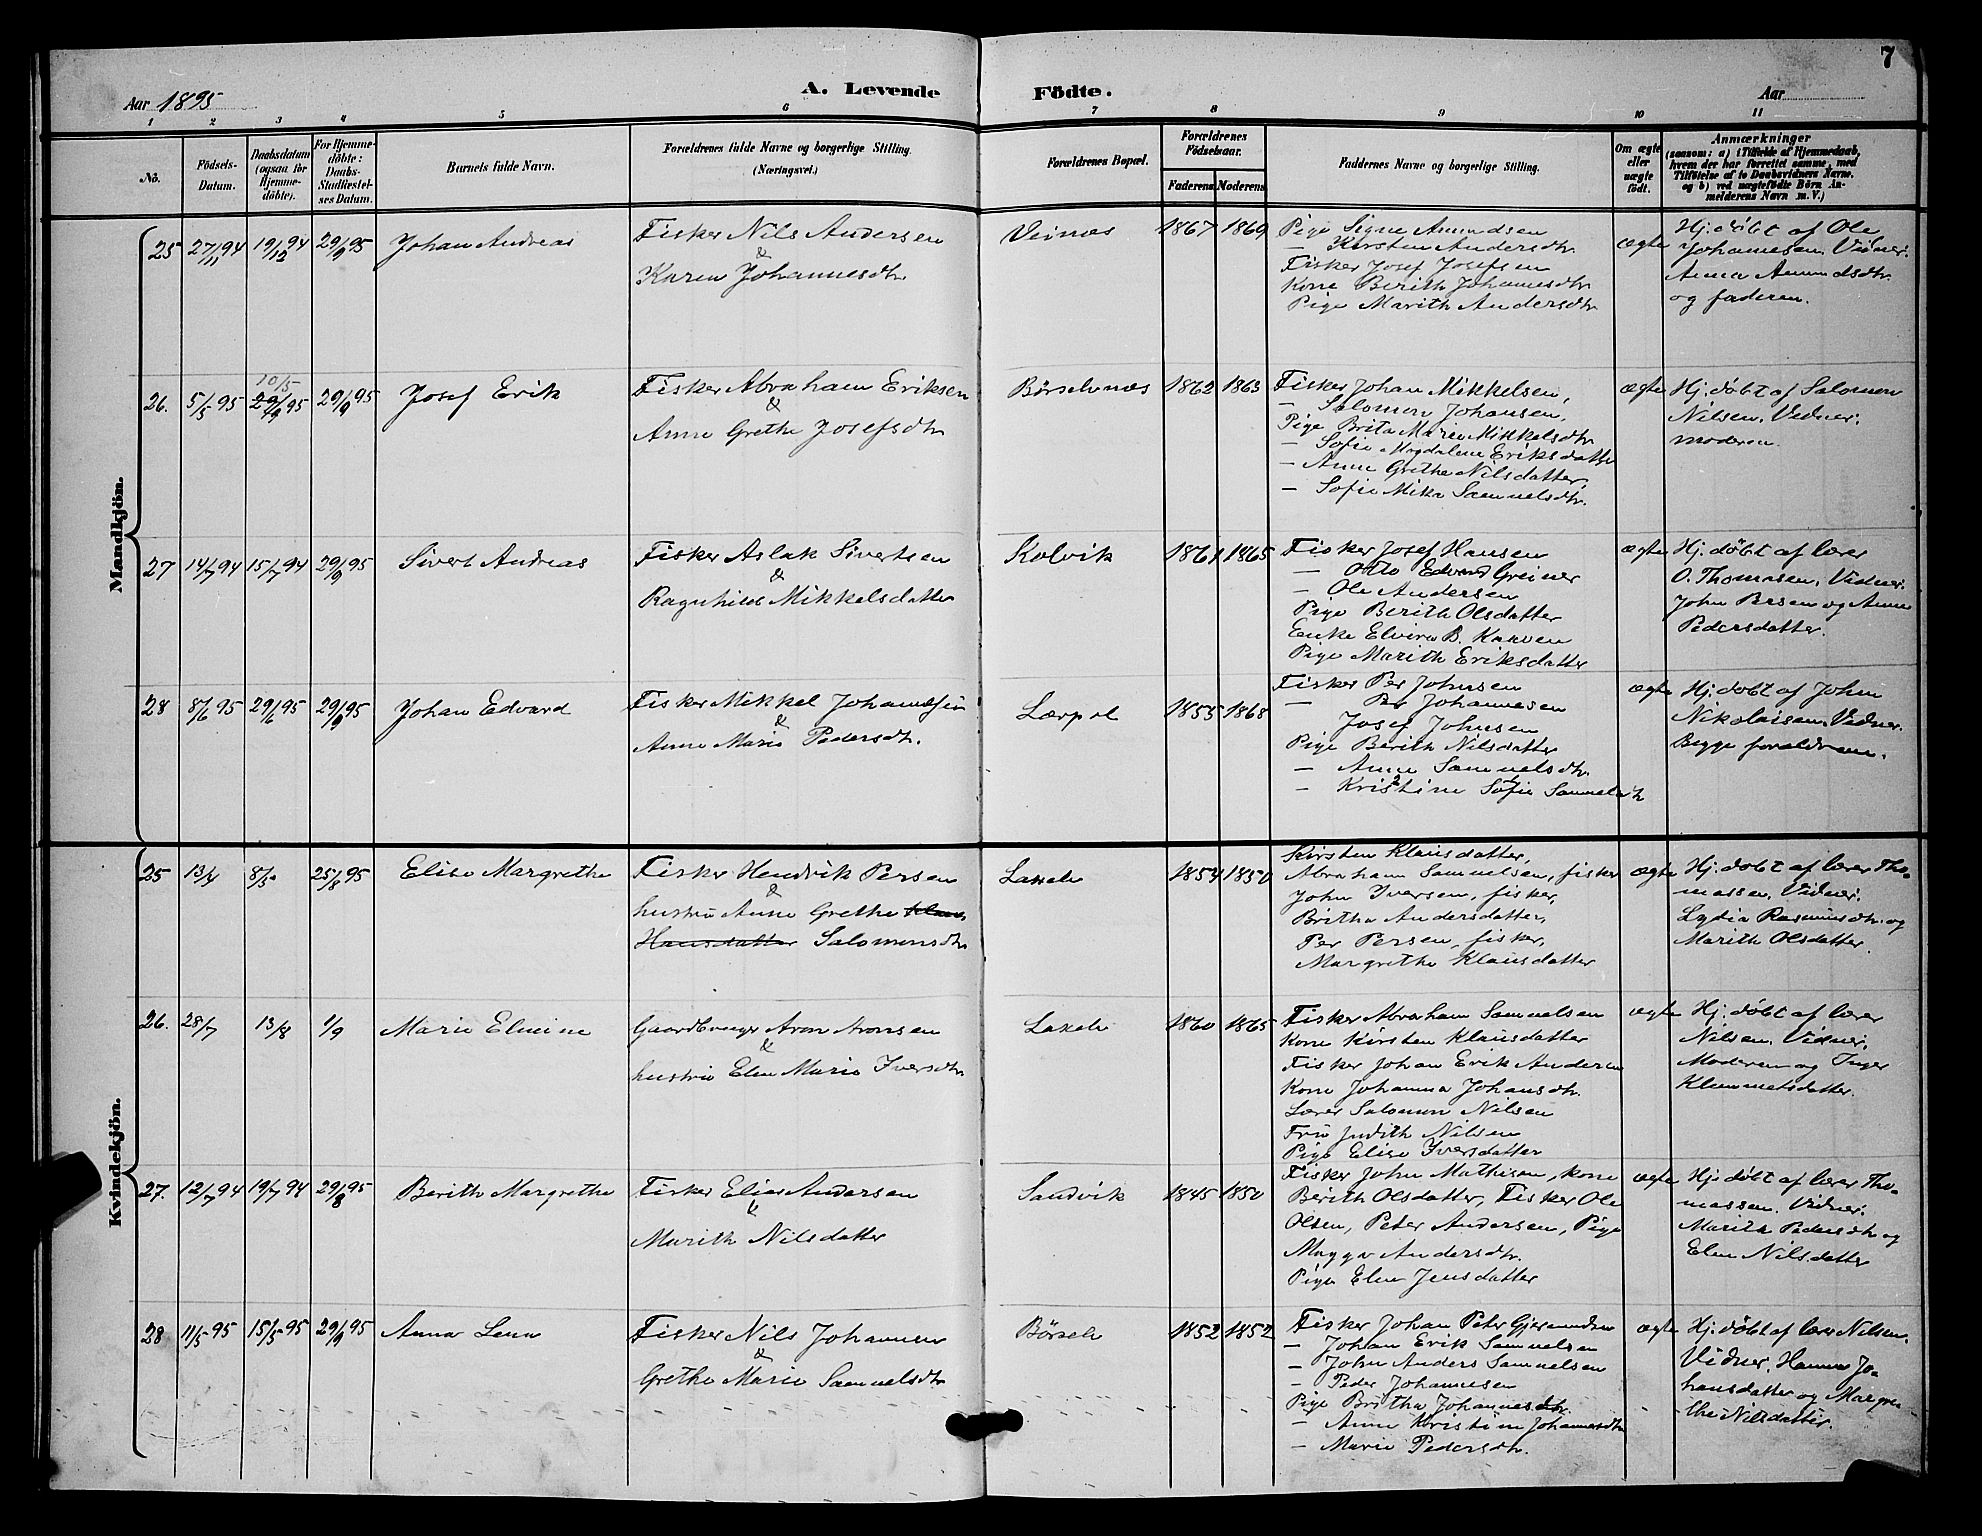 7
Aar 1895
A. Levende Födte.
Aar
1 2 3 4 5 6 7 8 9 10 11
No.
Födsels-Datum.
Daabsdatum (ogsaa for Hjemmedöbte).
For Hjemmedöbte: Daabs-Stadfæstelses Datum.
Barnets fulde Navn.
Forældrenes fulde Navne og borgerlige Stilling.
(Næringsvei.)
Forældrenes Bopæl.
Forældrenes Födselsaar.
Faderens
Moderens
Faddernes Navne og borgerlige Stilling.
Om ægte eller uægte födt.
Anmærkninger
(saasom: a) i Tilfælde af Hjemmedaab,
hvem der har forrettet samme, med
Tilföielse af to Daabsvidners Navne,
og b) ved uægtefödte Börn An-
melderens Navn m. V.)
Mandkjön.
25 27/11 94 19/12 94 29/9 95 Johan Andreas
Fisker Nils Andersen
&
Karen Johannesdtr.
Veines 1867 1869
Pige Signe Amundsen
— Kirsten Andersdtr.
Fisker Josef Josefsen
Kone Berith Johannesdtr.
Pige Marith Andersdtr
ægte
Hj. döbt af Ole
Johannesen. Vidner:
Anna Amundsdtr.
og faderen.
26. 5/5 95 10/5 29/9 95 29/9 95 Josef Erik
Fisker Abraham Eriksen
&
Anne Grethe Josefsdtr
Börselvnes 1862 1863
Fisker Johan Mikkelsen,
— Salomon Johansen,
Pige Brita Marie Mikkelsdtr
— Sofie Magdalene Eriksdatter
— Anne Grethe Nilsdatter,
— Sofie Mika Samuelsdtr.
ægte
Hj. döbt af Salomon
Nilsen. Vidner:
moderen.
27 14/7 94 15/7 94 29/9 95 Sivert Andreas
Fisker Aslak Sivertsen
&
Ragnhild Mikkelsdatter
Kolvik 1861 1865
Fisker Josef Hansen
— Otto Edvard Greiner
— Ole Andersen
Pige Berith Olsdatter
Enke Elvira B. Karven
Pige Marith Eriksdatter
ægte
Hj. döbt af lærer
O. Thomasen. Vidner:
John Persen og Anne
Pedersdatter.
28 8/6 95 29/6 95 29/9 95 Johan Edvard
Fisker Mikkel Johannesen
&
Anne Marie Pedersdtr.
Lærpol 1855 1868
Fisker Per Johnsen
— Per Johannesen
Josef Johnsen
Pige Berith Nilsdatter
— Anne Samuelsdtr.
— Kristine Sofie Samuelsdtr
ægte
Hj. döbt af John
Nikolaisen. Vidner:
Begge forældrene.
Kvindekjön.
25 13/4 8/5 25/8 95 Elise Margrethe
Fisker Hendrik Persen
&
hustru Anne Grethe Klaus
Hansdatter Salomonsdtr
Laxelv 1854 1850
Kirsten Klausdatter,
Abraham Samuelsen, fisker
John Iversen, fisker,
Britha Andersdatter,
Per Persen, fisker,
Margrethe Klausdatter
ægte
Hj. döbt af lærer Tho-
massen. Vidner:
Lydia Rasmusdtr. og
Marith Olsdatter
26. 28/7 13/8 1/9 Marie Elmine
Gaardbruger Aron Aronsen
&
hustru Elen Marie Iversdtr.
Laxelv 1860 1865
Fisker Abraham Samuelsen
Kone Kirsten Klausdatter
Fisker Johan Erik Andersen
Kone Johanna Johansdtr.
Lærer Salomon Nilsen
Fru Judith Nilsen
Pige Elise Iversdatter
ægte
Hj. döbt af lærer
Nilsen. Vidner:
Moderen og Inger
Klemmetsdatter.
27. 12/7 94 19/7 94 29/8 95 Berith Margrethe
Fisker Elias Andersen
&
Marith Nilsdatter
Sandvik 1845 1850
Fisker John Mathisen, kone
Berith Olsdatter, Fisker Ole
Olsen, Peter Andersen, Pige
Magga Andersdtr.
Pige Elen Jensdatter
ægte
Hj. döbt af lærer Tho-
massen. Vidner:
Marith Pedersdtr og
Elen Nilsdatter
28 11/5 95 15/5 95 29/9 95 Anna Lena
Fisker Nils Johannesen
&
Grethe Marie Samuelsdtr
Börselv 1852 1852
Fisker Johan Peter Gjermundsen
— Johan Erik Samuelsen
— John Anders Samuelsen
— Peder Johannesen
Pige Britha Johannesdtr.
— Anne Kristine Johannesdtr
— Marie Pedersdtr.
ægte
Hj. döbt af lærer Nilsen.
Vidner: Hanna Jo-
hansdatter og Margre-
the Nilsdatter.